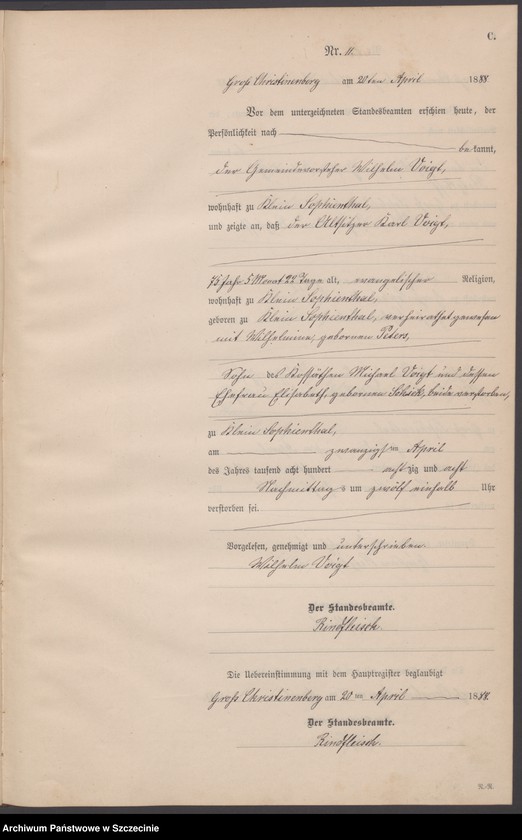 C.
Nr. 11.
Groß Christinenberg am 20ten April 1888
Vor dem unterzeichneten Standesbeamten erschien heute, der
Persönlichkeit nach
be kannt,
der Gemeindevorsteher Wilhelm Voigt,
wohnhaft zu Klein Sophienthal,
und zeigte an, daß der Altsitzer Karl Voigt,
75 Jahr 5 Monat 22 Tage alt, evangelischer Religion,
wohnhaft zu Klein Sophienthal,
geboren zu Klein Sophienthal, verheirathet gewesen
mit Wilhelmine, gebornen Peters,
Sohn des Kossäthen Michael Voigt und dessen
Ehefrau Elisabeth, gebornen beide verstorben,
zu Klein Sophienthal,
am zwanzigsten April
des Jahres tausend acht hundert acht zig und acht
Nachmittags um zwölf einhalb Uhr
verstorben sei.
Vorgelesen, genehmigt und unterschrieben
Wilhelm Voigt
Der Standesbeamte.
Rindfleisch.
Die Uebereinstimmung mit dem Hauptregister beglaubigt
Groß Christinenberg am 20ten April 1888.
Der Standesbeamte.
Rindfleisch.
R-R.
Archiwum Państwowe w Szczecinie